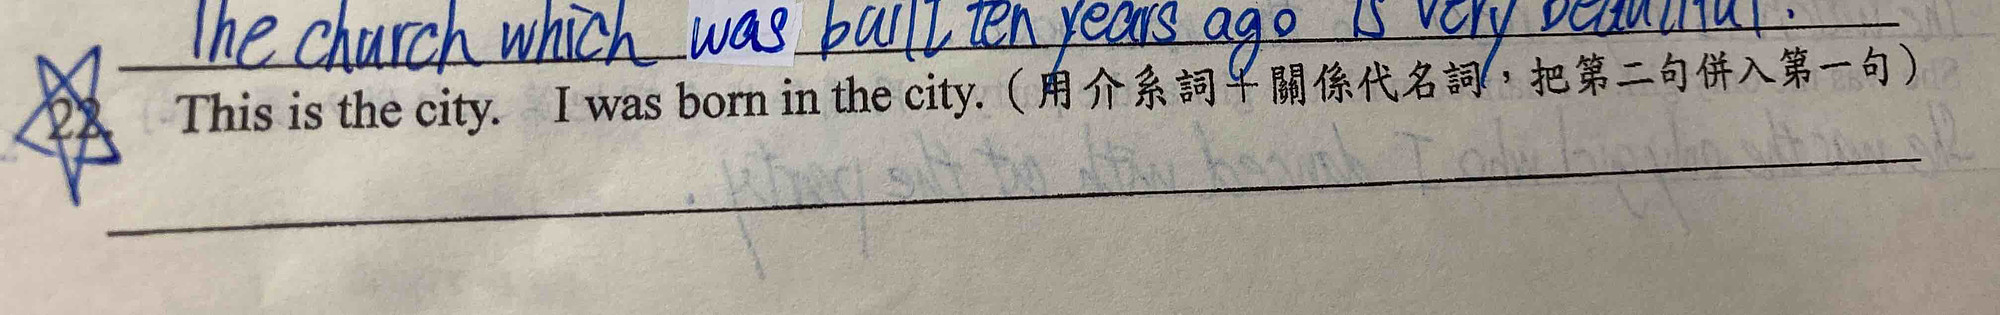 The church which was built ten years ago is very beautiful.
22. This is the city. I was born in the city.(用介系詞+關係代名詞,把第二句併入第一句)